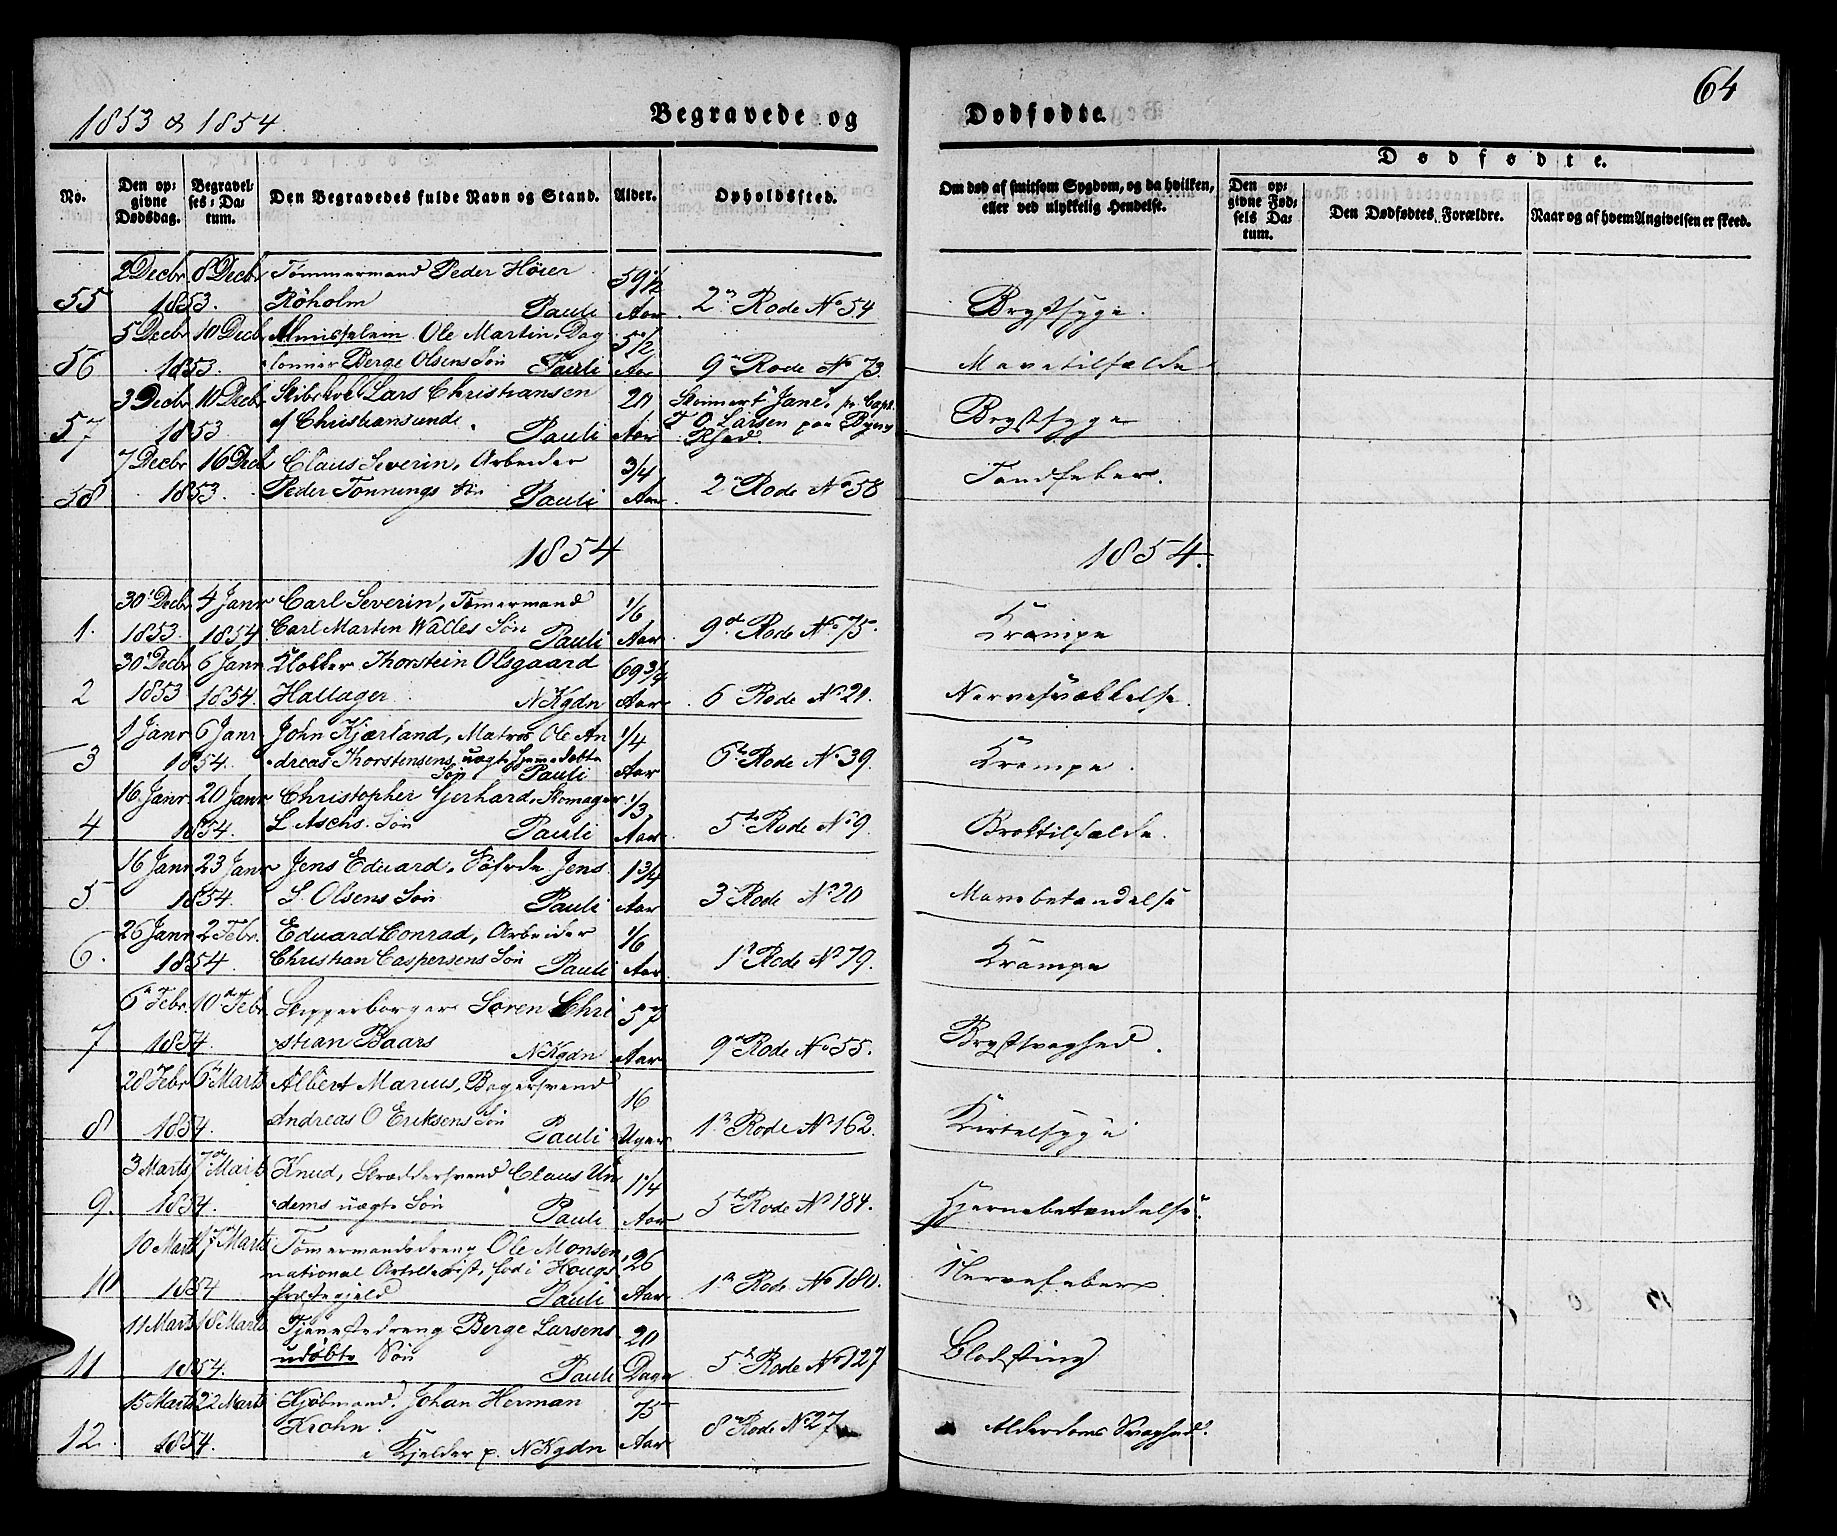 1853 & 1854.
Begravede og Dødfødte.
64
No.
Den opgivne Dødsdag.
Begravelses-Datum.
Den Begravedes fulde Navn og Stand.
Alder.
Opholdssted.
Om død af smitsom Sygdom, og da hvilken, eller ved ulykkelig Hendelse.
Dødfødte.
Den opgivne Fødsels Datum.
Den Dødfødtes Forældre.
Naar og af hvem Angivelsen er skeed.
55 2 Decbr 8 Decbr 1853. Tømmermand Peder Höier Röholm Pauli 59 1/2 Aar 2n Rode No 54 Brystsyge.
56 5 Decbr 10 Decbr 1853. Ole Martin, Dag lönner Berge Olsens Sön Pauli 5 1/2 Aar 9 Rode No 73. Mavetilfælde
57 3 Decbr 10 Decbr 1853 Lars Christiansen af Christiansund. Pauli 20 Aar Jane, pr. Capt. T O Larsen paa Rhed. Brystsyge
58. 7 Decbr 16 Decb 1853. Claus Severin, Arbeider Peder Tonnings Sön Pauli 3/4 Aar 2 Rode No 58 Tandfeber.
1854
1854.
1. 30 Decbr 1853 4 Janr 1854 Carl Severin, Tømermand Carl Martin Walles Sön Pauli 1/6 Aar 9de Rode No 75. Krampe
2 30 Decbr 1853 6 Janr 1854. Klokker Thorstein Olsgaard Hallager N Kgdn 69 3/4 Aar 6 Rode No 20. Nervesvækkelse.
3 1 Janr 6 Janr 1854. John Kjærland, Matros Ole Andreas Thorstensens uægte hjemedøbte Sön Pauli 1/4 Aar 6te Rode No 39. Krampe.
4 16 Janr 20 Janr 1854. Christopher Gerhard, Skomager L Aschs Sön Pauli 1/3 Aar 5te Rode No 9. Broktilfælde.
5 16 Janr 23 Janr 1854. Jens Eduard, Jens L. Olsens Sön Pauli 1 3/4 Aar 3 Rode No 20 Mavebetændelse
6. 26 Janr 2 Febr. 1854. Eduard Conrad, Arbeider Christian Caspersens Sön Pauli 1/6 Aar 1t Rode No 79. Krampe
7 6n Febr. 10de Febr. 1854. Skipperborger Sören Christian Baars N Kgdn 57 Aar 9n Rode No 55. Brystsvaghed.
8 28 Febr 6n Marts 1854. Albert Marius, Bagersvend Andreas O Eriksens Sön Pauli 16 Uger 1n Rode No 162. Kirtelsyge
9. 3 Marts 7de Marts 1854. Knud, Skræddersvend Claus Undems uægte Sön Pauli 1 1/4 Aar 5te Rode No 184. Hjernebetændelse.
10 10 Marts 17 Marts 1854 Tømermandsdreng Ole Monsen, national Artillerist, föd i Hougs Præstegjeld Pauli 26 Aar 1n Rode No 180. Nervefeber
11 11 Marts 18 Marts 1854. Tjenestedreng Berge Larsens udöbte Sön Pauli 20 Dage 5te Rode No 127 Blodsting
12. 15 Marts 22 Marts 1854. Kjøbmand, Johan Herman Krohn. i Kjelder p. N Kgdn 75 Aar 8 Rode No 27 Alderdoms Svaghed.